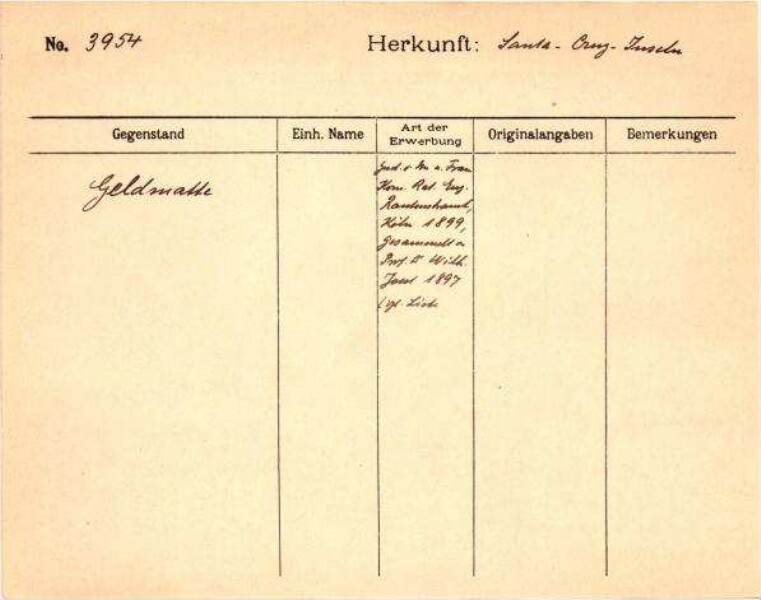 No. 3954
Herkunft: Santa-Cruz-Inseln
Gegenstand
Einh. Name
Art der Erwerbung
Originalangaben
Bemerkungen
Geldmatte
Frau
Kom. Rat. Eug.
Rautenstrauch,
Köln 1899,
Gesammelt v.
Prof. Dr Wilh.
Joest 1897
Liste